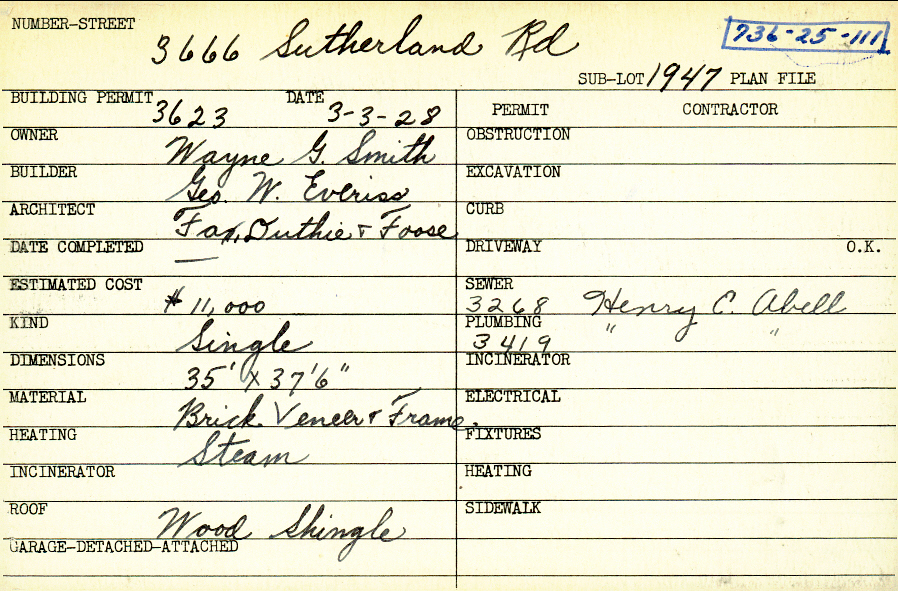 NUMBER-STREET 3666 Sutherland Rd 736-25-111
SUB-LOT 1947 PLAN FILE
BUILDING PERMIT 3623 DATE 3-3-28
OWNER Wayne G. Smith
BUILDER Geo. W. Everiss
ARCHITECT Fax, Duthie & Foose
DATE COMPLETED —
ESTIMATED COST $ 11,000
KIND Single
DIMENSIONS 35' X 37'6"
MATERIAL Brick Veneer & Frame.
HEATING Steam
INCINERATOR
ROOF Wood Shingle
GARAGE-DETACHED-ATTACHED
PERMIT CONTRACTOR
OBSTRUCTION
EXCAVATION
CURB
DRIVEWAY O.K.
SEWER 3268 Henry C. Abell
PLUMBING 3419 " "
INCINERATOR
ELECTRICAL
FIXTURES
HEATING
SIDEWALK